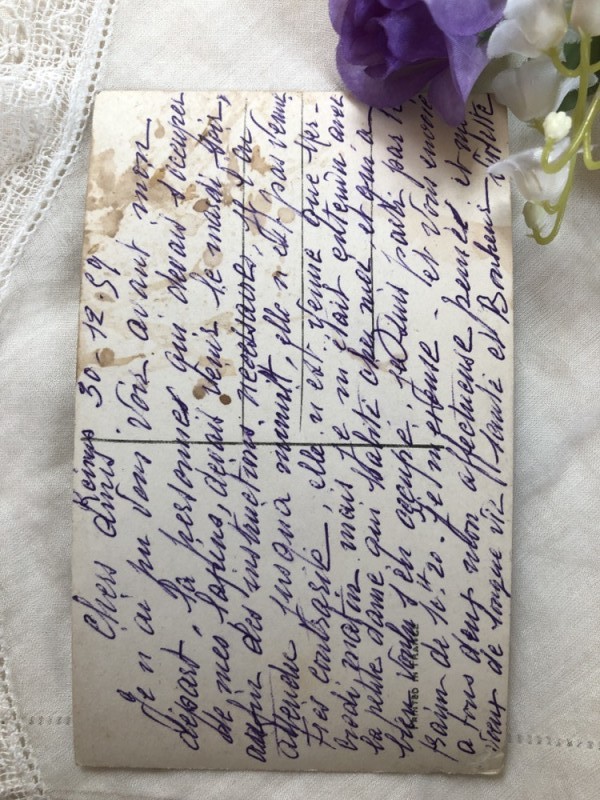 Reims 30-12-59
Chers amis
Je n'ai pu vous voir avant mon
départ. La personne qui devait s'occuper
de mes lapins, devait venir le mardi soir,
des instructions nécessaires,
attendu jusqu'à minuit, elle n'est pas venue
très contrariée, elle n'est venue que mer-
credi matin mais je m'était entendu avec
la petite dame qui habite chez moi, et qui a
bien voulu s'en occupé, je suis parti par le
train de 10h 20. Je m'ennuie - et vous envoie
a tous deux mon affectueuse pensée et mes
vœux de longue vie Santé et Bonheur
PRINTED IN FRANCE